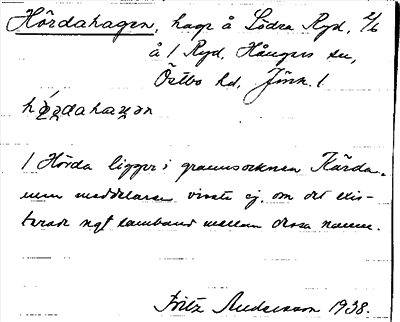 Hördahagen, hage å Södra Ryd, 2/6
å 1 Ryd, Hångers sn,
Östbo hd, Jönk. l.
hǿṛdahaːgən
1 Hörda ligger i grannsocknen Kärda,
men meddelaren visste ej, om det exis-
terade ngt samband mellan dessa namn.
Fritz Andersson 1938.